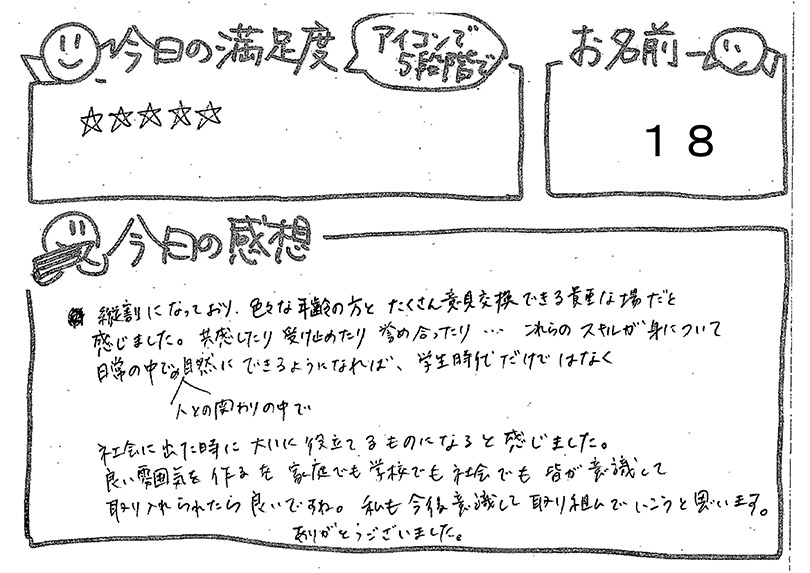 今日の満足度
アイコンで
5段階で
お名前
☆☆☆☆☆
18
今日の感想
縦割になっており、色々な年齢の方と たくさん意見交換できる貴重な場だと
感じました。共感したり 受け止めたり 誉め合ったり… これらの スキルが身について
日常の中で、自然に できるようになれば、学生時代だけではなく
人との関わりの中で
社会に出た時に 大いに役立てるものになると感じました。
良い雰囲気を 作るを 家庭でも学校でも社会でも 皆が意識して
取り入れられたら良いですね。私も今後意識して取り組んでいこうと思います。
ありがとうございました。